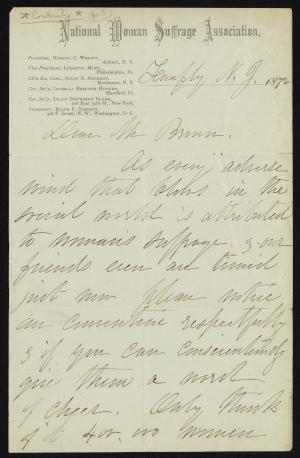 National Woman Suffrage Association.
President, MARTHA C. WRIGHT,
Auburn, N. Y.
Vice President, LUCRETIA MOTT,
Philadelphia, Pa.
Ch'n Ex. Com., SUSAN B. ANTHONY,
Rochester, N. Y.
Cor. Sec'y, ISABELLA BEECHER HOOKER,
Hartford, Ct.
Rec. Sec'y, LILLIE DEVEREUX BLAKE,
New York.
Treasurer, ELLEN C. SARGENT,
308 F. Street, N. W., Washington, D. C.
Tenafly N. J. 187
Dear Mr
As every adverse
wind that blows in the
social world is attributed
to woman's suffrage & our
friends even are timid
just now. Please notice
our convention respectfully
& if you can conscientiously
give them a word
of cheer. Only think
of it 400.00 women